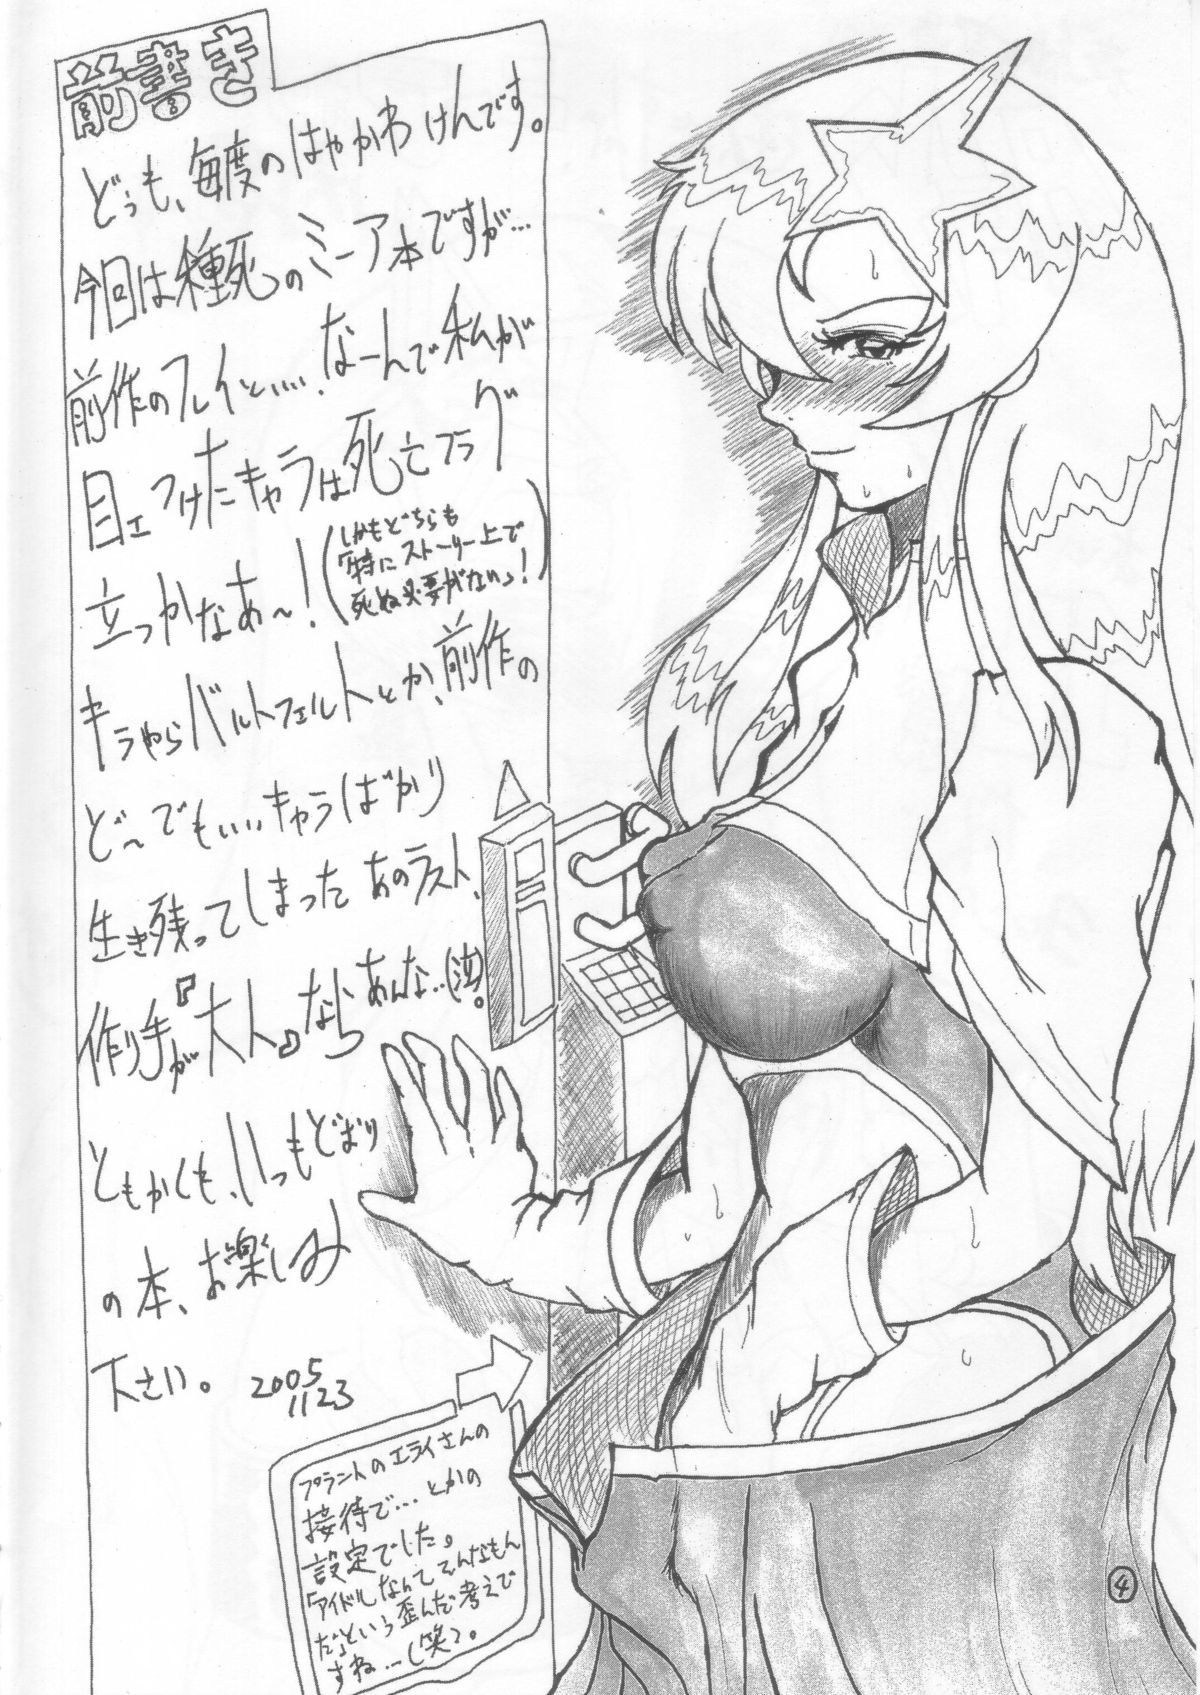 前書き
どうも、毎度のはやかわけんです。
今回は種死のミーア本ですが…
前作のフレイといい、なーんで私が
目エつけたキャラは死亡フラグ
立つかなあ〜!(しかもどちらも
特にストーリー上で
死ぬ必要がないっ!)
キラやらバルトフェルトとか、前作の
ど〜でもいいキャラばかり
生き残ってしまったあのラスト、
作り手が『大人』ならあんな…(泣)。
ともかくも、いつもどおり
の本、お楽しみ
下さい。 2005
1123
プラントのエライさんの
接待で…とかの
設定でした。
「アイドルなんてそんなもん
だ」という歪んだ考えで
すね…(笑)。
4